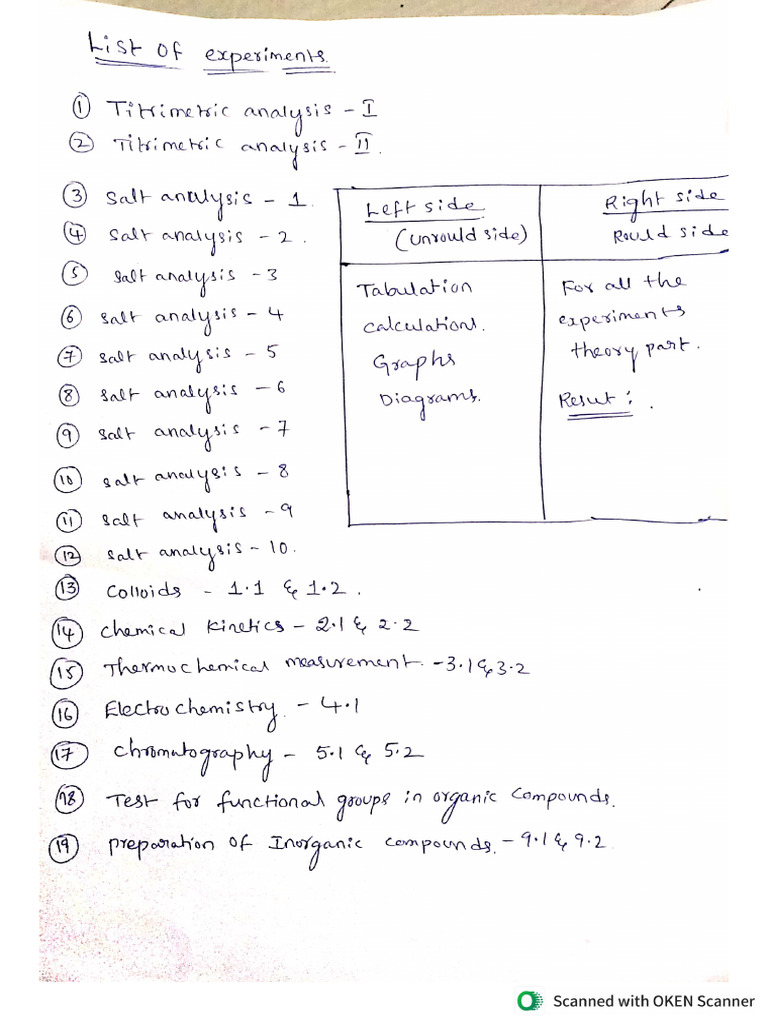 List of experiments.
① Titrimetric analysis - I
② Titrimetric analysis - II.
③ Salt analysis - 1.
④ Salt analysis - 2.
⑤ Salt analysis - 3
⑥ Salt analysis - 4
⑦ Salt analysis - 5
⑧ Salt analysis - 6
⑨ Salt analysis - 7
⑩ Salt analysis - 8
⑪ Salt analysis - 9
⑫ Salt analysis - 10.
⑬ Colloids - 1.1 & 1.2.
⑭ Chemical Kinetics - 2.1 & 2.2
⑮ Thermochemical measurement. - 3.1 & 3.2
⑯ Electrochemistry. - 4.1
⑰ Chromatography - 5.1 & 5.2
⑱ Test for functional groups in organic compounds.
⑲ preparation of Inorganic compounds. - 9.1 & 9.2
Left side
(unrould side)
Tabulation
Calculations.
Graphs
Diagrams.
Right side
Rould side
For all the
experiments
theory part.
Result: .
Scanned with OKEN Scanner